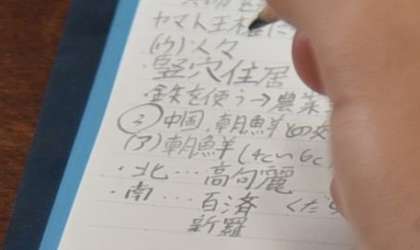 ヤマト王権に
(ウ)人々
・竪穴住居
・鉄を使う→農業
③中国、朝鮮半
(ア)朝鮮半(4c~6c)
・北…高句麗
・南…百済 くだら
新羅